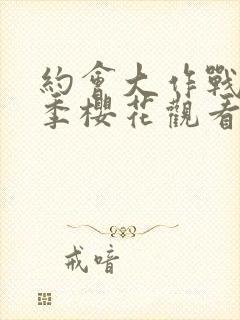 約會大作戰
季櫻花觀看
戒喑